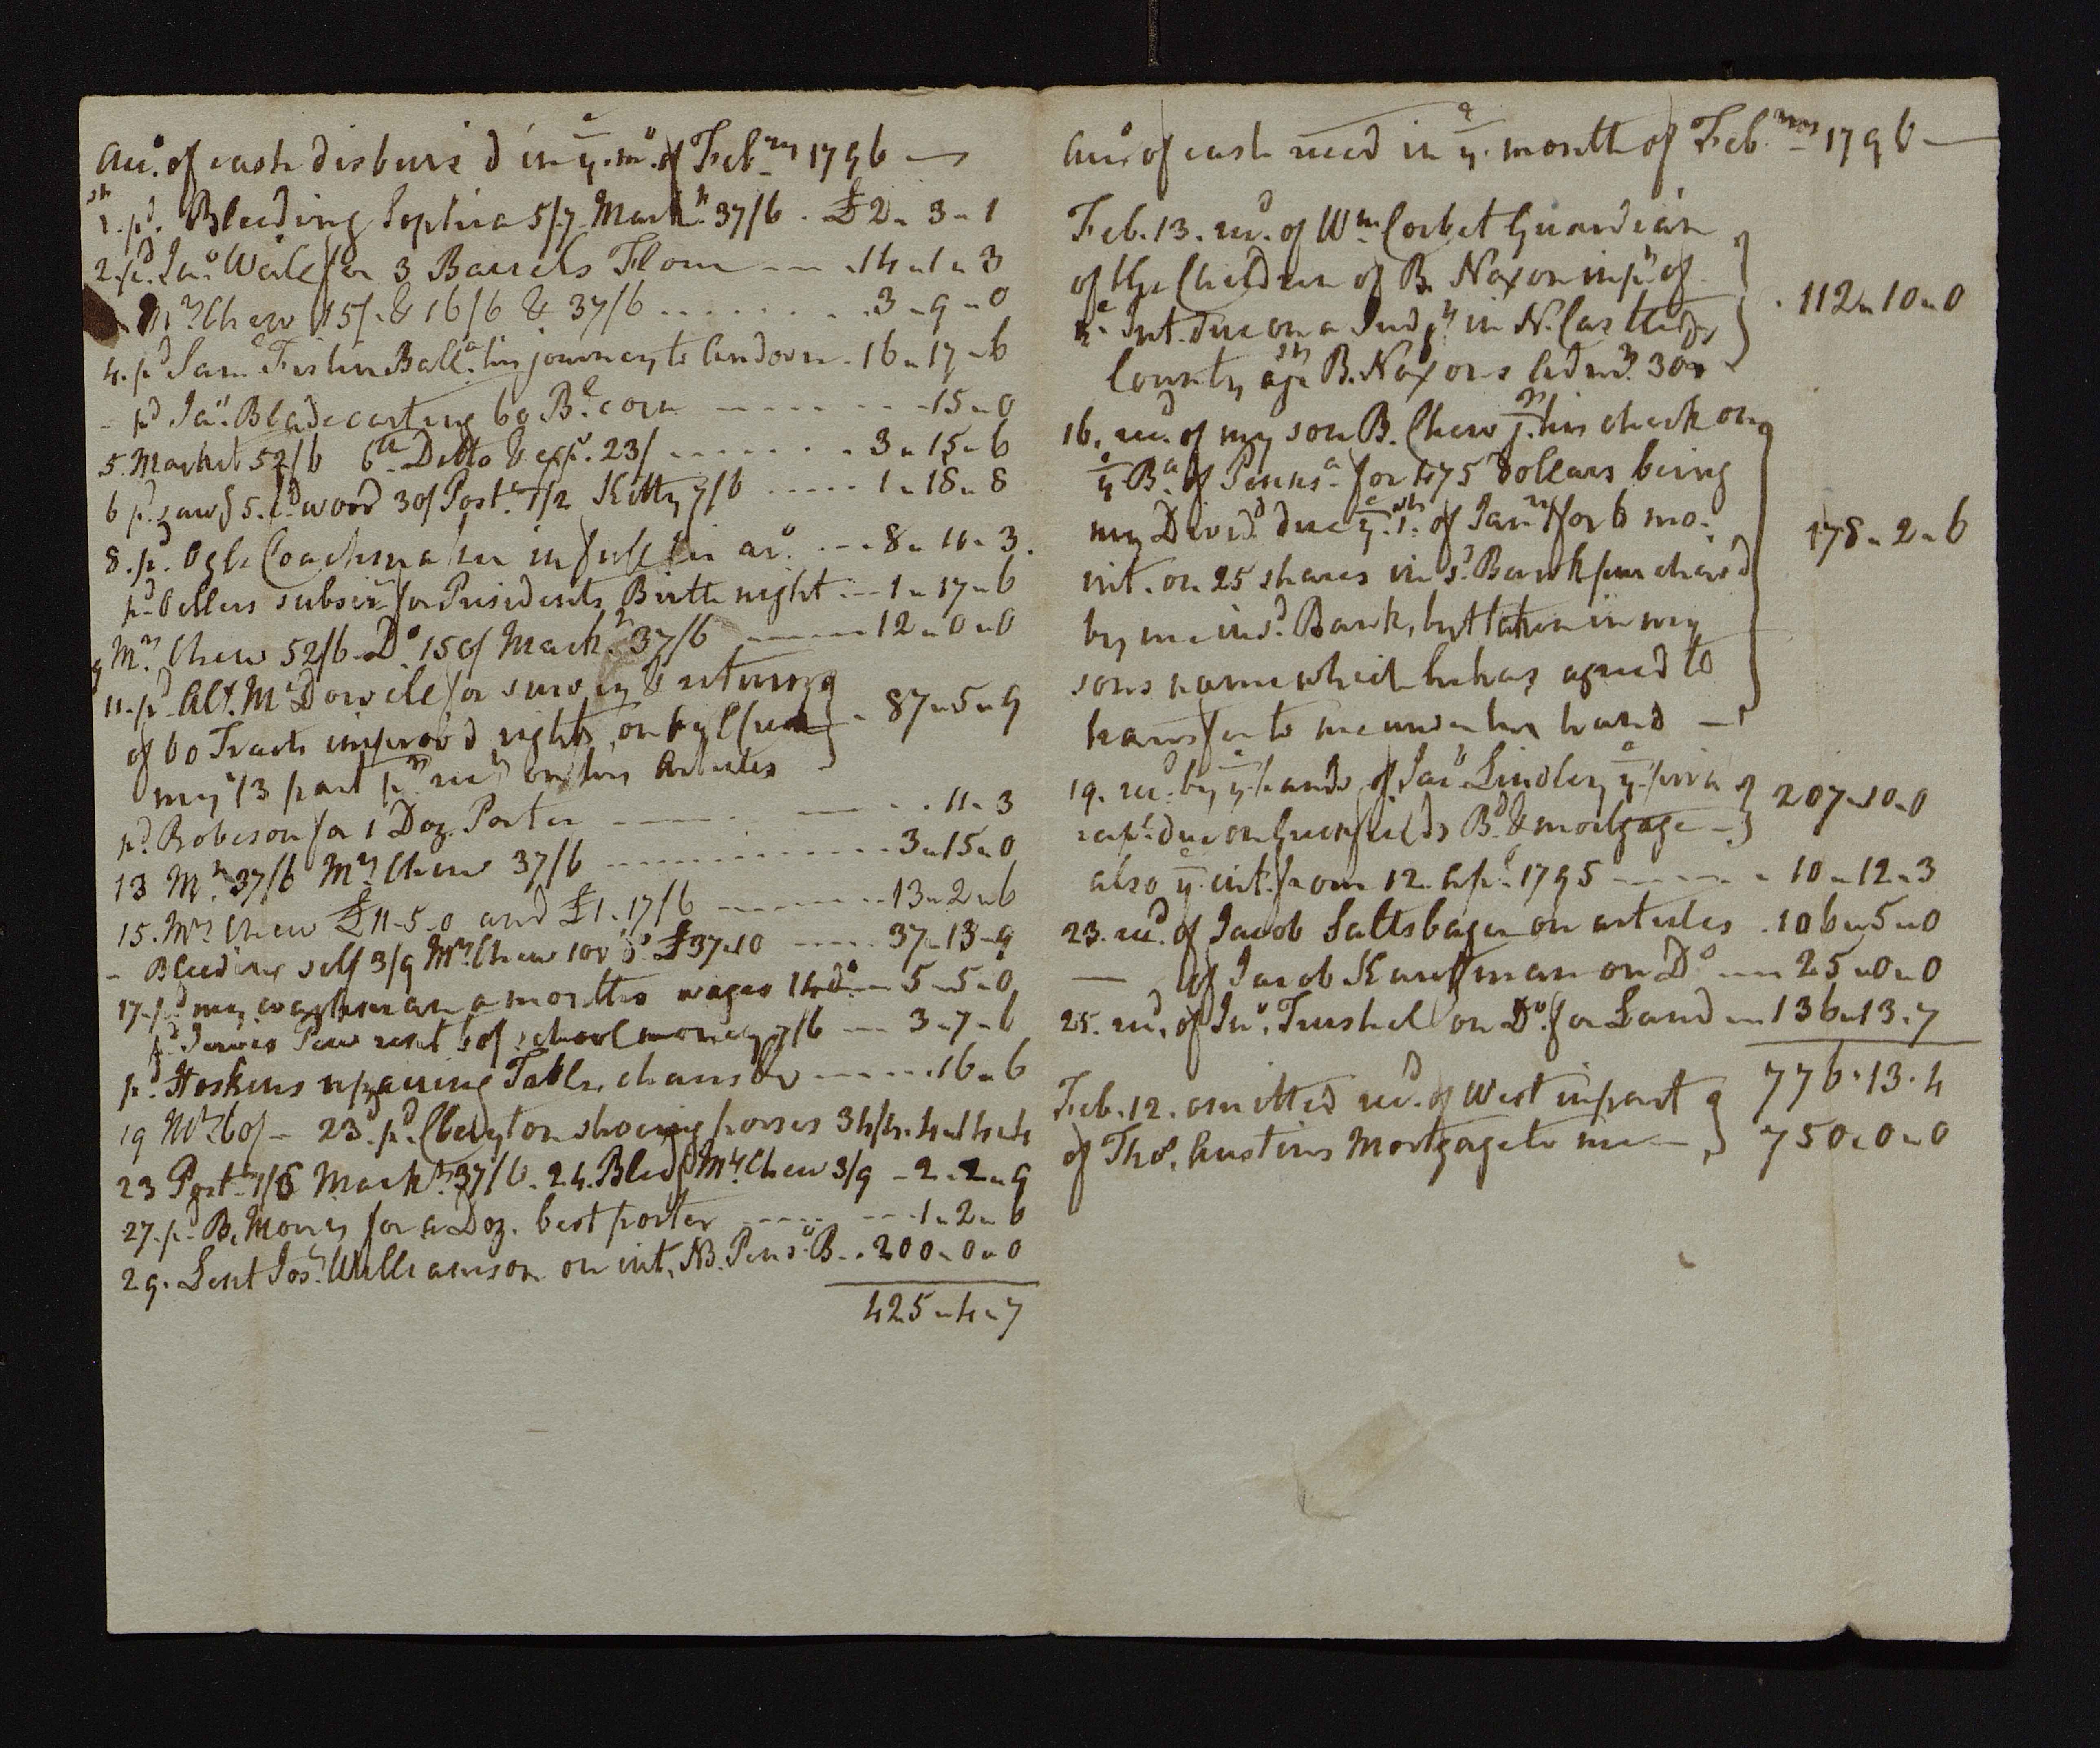 Acc.o of cash disburs'd in ye mo. of Feb.ry 1796 —
1.st p.d Bleeding Sophia 5/7 Mark.t 37/6 . £2 - 3 - 1
2. p.d Jno. Weile for 3 Barrels Flour — 14 - 1 - 3
M.rs Chew 15/- & 16/6 & 37/6 . . . . 3 - 9 - 0
4. p.d Sam.l Fisher Ball.a his journey to 16 - 17 - 6
- p.d Ja.s Blade carting 60 B.l corn — 15 - 0
5. Market 52/6 6.th Ditto & exp.s 23/ . . . . 3 - 15 - 6
6 p.d saw.g 5. c.d wood 30/ Post.e 1/2 Kitty 7/6 . . . . 1 - 18 - 8
8. p.d Ogle Coachmaker in full his ac.o . - - 8 - 10 - 3.
p.d Oellers subscr.n for Presidents Birth night — 1 - 17 - 6
9 M.rs Chew 52/6 D.o 150/ Mark.t 37/6 — 12 - 0 - 0
11. p.d Alx. McDowell for survey & return.g
of 60 Tracts improv'd rights, on
my 1/3 part p.r rec.t on his Articles } 87 - 5 - 9
p.d Robeson for 1 Doz. Porter — . 11 - 3
13 M.t 37/6 M.rs Chew 37/6 — 3 - 15 - 0
15. M.rs Chew £11-5-0 and £1. 17/6 — 13 - 2 - 6
- Bleeding self 3/9 M.rs Chew 100 d.s £37.10 — 37 - 13 - 9
17. p.d my washwoman a months wages 14 d.s — 5 - 5 - 0
p.d Jervis Pew rent 60/ school money 7/6 — 3 - 7 - 6
p.d Hoskins repairing Table, chairs &c — . 16 - 6
19 M.t 60/ - 23.d p.d Clayton shoeing horses 34/4. 4 - 14 - 4
23 Post.e 1/6 Mark.t 37/6. 24. Bleed.g M.rs Chew 3/9 - 2 - 2 - 9
27. p.d B. Morris for a Doz. best porter — 1 - 2 - 6
29. Lent Jos.h Williamson on int. NB. Pens.a B. . 200 - 0 - 0
425 - 4 - 7
Acc.o of cash recd in ye month of Feb.ry 1796 —
Feb. 13. rec.d of W.m Corbet Guardian
of the Children of B. Naxon in p.t of
ye Int. due on a Judg.t in N. Castle
County ag.st B. Naxons Adm.r 300 } . 112 - 10 - 0
16. rec.d of my son B. Chew jr. his check on
ye B.a of Penns.a for 475 dollars being
my Divid.d due ye 1.st of Jan.ry for 6 mo.
int. on 25 shares in s.d Bank purchased
by me in s.d Bank, but taken in my
sons name which he has agreed to
transfer to me under his hand — } 178 - 2 - 6
19. rec.d by ye hands of Ja.s Lindley ye prin
cip.l due on Greenfields B.d & mortgage — } 207 - 10 - 0
also ye int. from 12. Ap.l 1795 — 10 - 12 - 3
23. rec.d of Jacob Saltsbager on articles . 106 - 5 - 0
— of Jacob Kauffman on D.o — 25 - 0 - 0
25. rec.d of Jno. Trushel on D.o for Land — 136 - 13 - 7
776 . 13 . 4
Feb. 12. omitted rec.d of West in part
of Tho.s Austins Mortgage to me — } 750 - 0 - 0